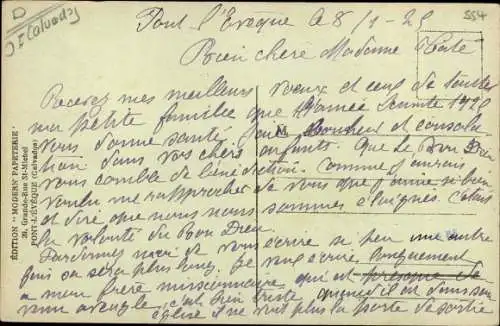 D
I (Calvados)
554
Pont l'Evêque 8/1-25
Bien chère Madame
Recevez mes meilleurs voeux et ceux de toutes
ma petite famille que l'année 1925
vous donne santé bonheur et consola
tion dans vos chers enfants. Que le Bon Dieu
vous comble de bénédiction. Comme j'aurais
voulu me rapprocher de vous que j'aime si bien
et dire que nous nous sommes éloignés c'était
la volonté du Bon Dieu
Pardonnez moi de vous écrire si peu une autre
fois ça sera plus long. Je vous écrire longuement
a mon frère missionnaire qui est presque
aveugle, c'est bien triste quand il est dans son
église il ne voit plus la porte de sortie
EDITION "MODERN' PAPETERIE"
39, Grande-Rue St-Michel
PONT-L'ÉVÊQUE (Calvados)